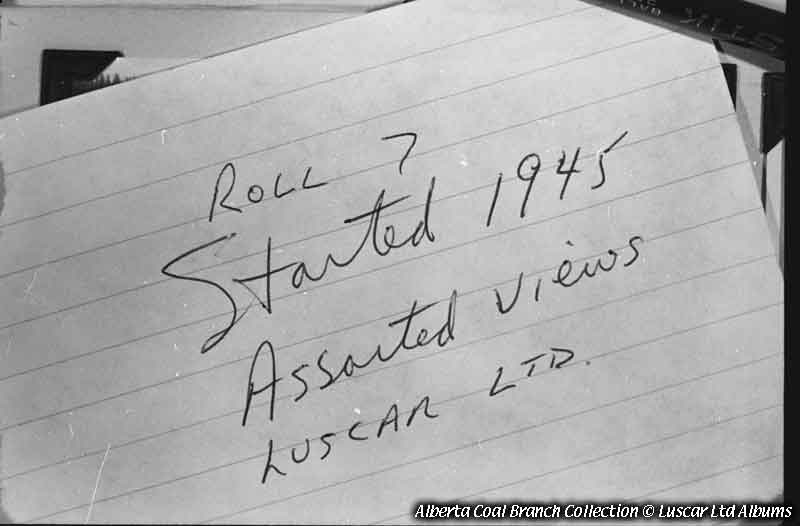 ROLL 7
Started 1945
Assorted Views
LUSCAR LTD.
Alberta Coal Branch Collection © Luscar Ltd Albums